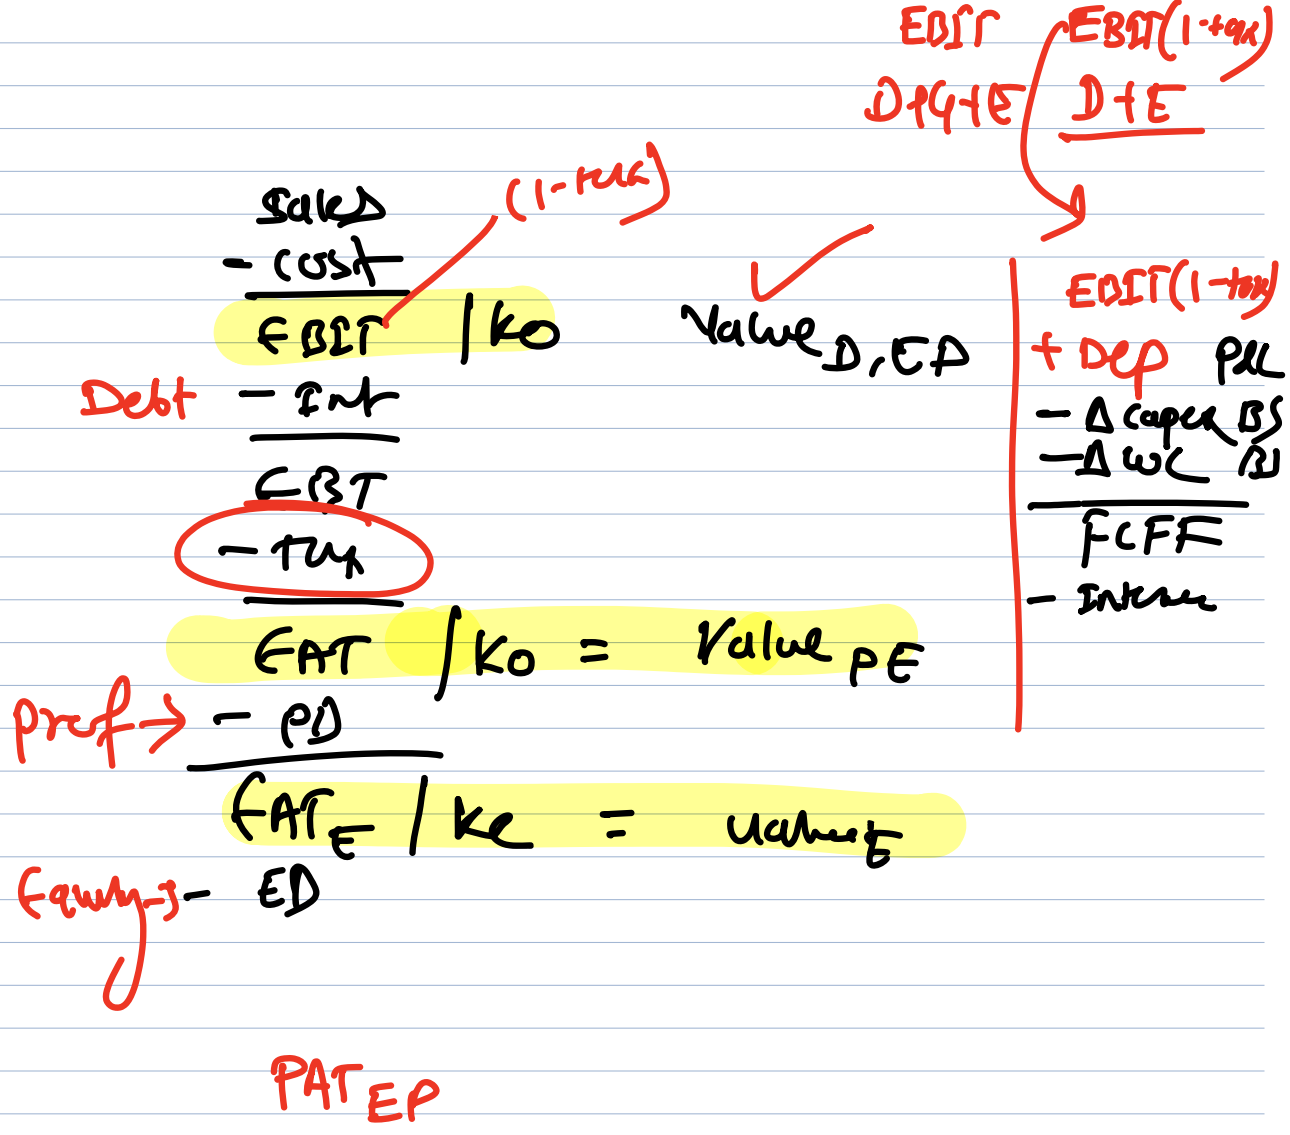 EBIT EBIT(1-tax)
D+G+E D+E
(1-tax)
Sales
- cost
EBIT / Ko Value D,E,P
Debt - Int
EBT
- tax
EAT / Ko = Value PE
Pref → - PD
EAT E / Ke = Value E
Equity → - ED
PAT EP
EBIT(1-tax)
+ Dep P&L
- Δ capex BS
- Δ WC BS
FCFF
- Interest